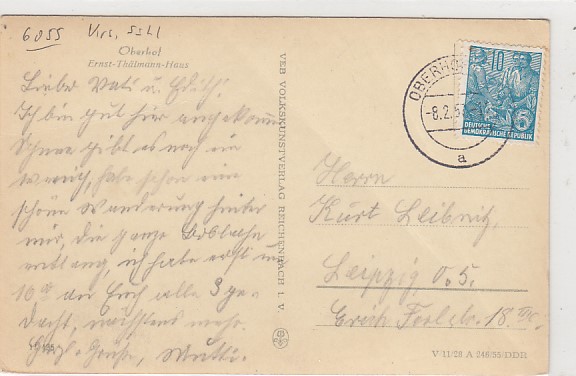 6055
Oberhof
Ernst-Thälmann-Haus
Lieber Vati u. Edith!
Ich bin gut hier angekommen
Schnee gibt es noch ein
wenig, habe schon eine
schöne Wanderung hinter
mir, die ganze
entlang, ich habe erst um
10 an Euch alle 3 ge-
dacht, nächstens mehr.
Herzl. Grüße, Mutti.
VEB VOLKSKUNSTVERLAG REICHENBACH I. V.
OBERHO
-8.2.5
a
10
DEUTSCHE
DEMOKRATISCHE REPUBLIK
Herrn
Kurt Leibnitz,
Leipzig O.5.
Erich Ferlstr. 18
V 11/28 A 246/55/DDR